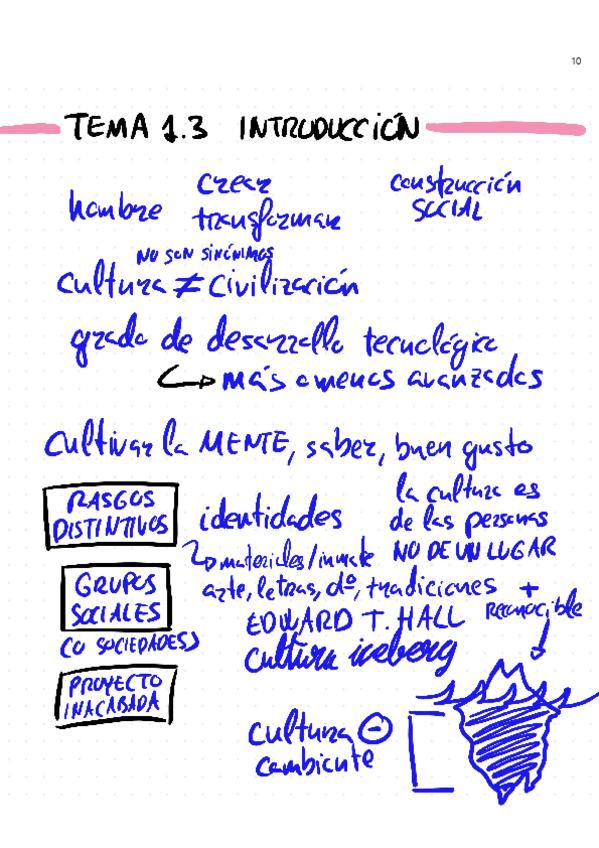 10
TEMA 1.3 INTRODUCCIÓN
crear construcción
hombre transformar SOCIAL
NO SON SINÓNIMOS
cultura ≠ civilización
grado de desarrollo tecnológico
↳ más o menos avanzados
Cultivar la MENTE, saber, buen gusto
RASGOS DISTINTIVOS
identidades
la cultura es
de las personas
NO DE UN LUGAR
↳ materiales/inmate
arte, letras, dº, tradiciones +
GRUPOS
SOCIALES
(O SOCIEDADES)
EDWARD T. HALL
reconocible
cultura iceberg
PROYECTO
INACABADA
cultura ⊖
cambiente